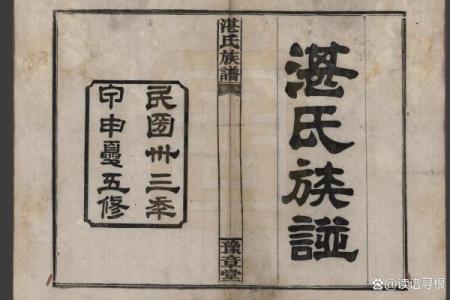 湛氏族譜
湛氏族譜
豫章堂
民國卅三年
甲申夏五修
@读谱寻根